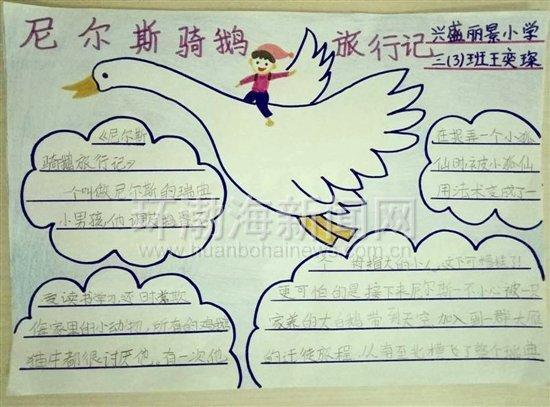 尼尔斯骑鹅旅行记
兴盛丽景小学
三(3)班王奕琛
《尼尔斯
骑鹅旅行记》
一个叫做尼尔斯的瑞典
小男孩,他调皮
爱读书学习,还时常欺
侮家里的小动物,所有的鸡鹅
猫牛都很讨厌他。有一次他
在捉弄一个小狐
仙时被小狐仙
用法术变成了一
个拇指大的小人,这下可惨了!
更可怕的是接下来尼尔斯一不小心被一只
家养的大白鹅带到天空加入到一群大雁
的迁徙旅程,从南至北横飞了整个瑞典
环渤海新闻网
www.huanbohainews.com.cn